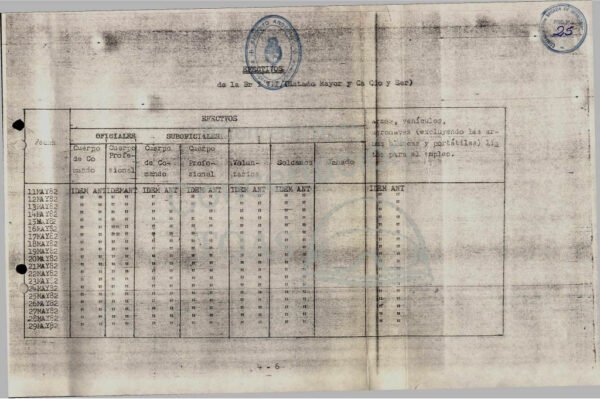 25
EFECTIVOS
de la Br (Estado Mayor y Ca Cdo y Ser)
Fecha
EFECTIVOS
OFICIALES SUBOFICIALES
Cuerpo de Comando
Cuerpo Profesional
Cuerpo de Comando
Cuerpo Profesional
Voluntarios
Soldados
Ganado
vehículos,
(excluyendo las
y portátiles)
para el empleo.
11MAY82 IDEM ANT IDEM ANT IDEM ANT IDEM ANT IDEM ANT IDEM ANT IDEM ANT
12MAY82 " " " " " " " " " " " " " "
13MAY82 " " " " " " " " " " " " " "
14MAY82 " " " " " " " " " " " " " "
15MAY82 " " " " " " " " " " " " " "
16MAY82 " " " " " " " " " " " " " "
17MAY82 " " " " " " " " " " " " " "
18MAY82 " " " " " " " " " " " " " "
19MAY82 " " " " " " " " " " " " " "
20MAY82 " " " " " " " " " " " " " "
21MAY82 " " " " " " " " " " " " " "
22MAY82 " " " " " " " " " " " " " "
23MAY82 " " " " " " " " " " " " " "
24MAY82 " " " " " " " " " " " " " "
25MAY82 " " " " " " " " " " " " " "
26MAY82 " " " " " " " " " " " " " "
27MAY82 " " " " " " " " " " " " " "
28MAY82 " " " " " " " " " " " " " "
29MAY82 " " " " " " " " " " " " " "
4 - 6